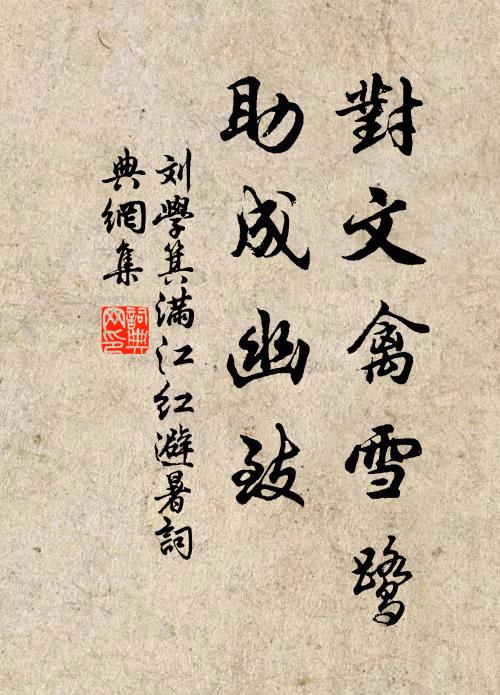 對文禽雪鷺
助成幽致
刘學箕满江红避暑詞
典網集
詞典
网印